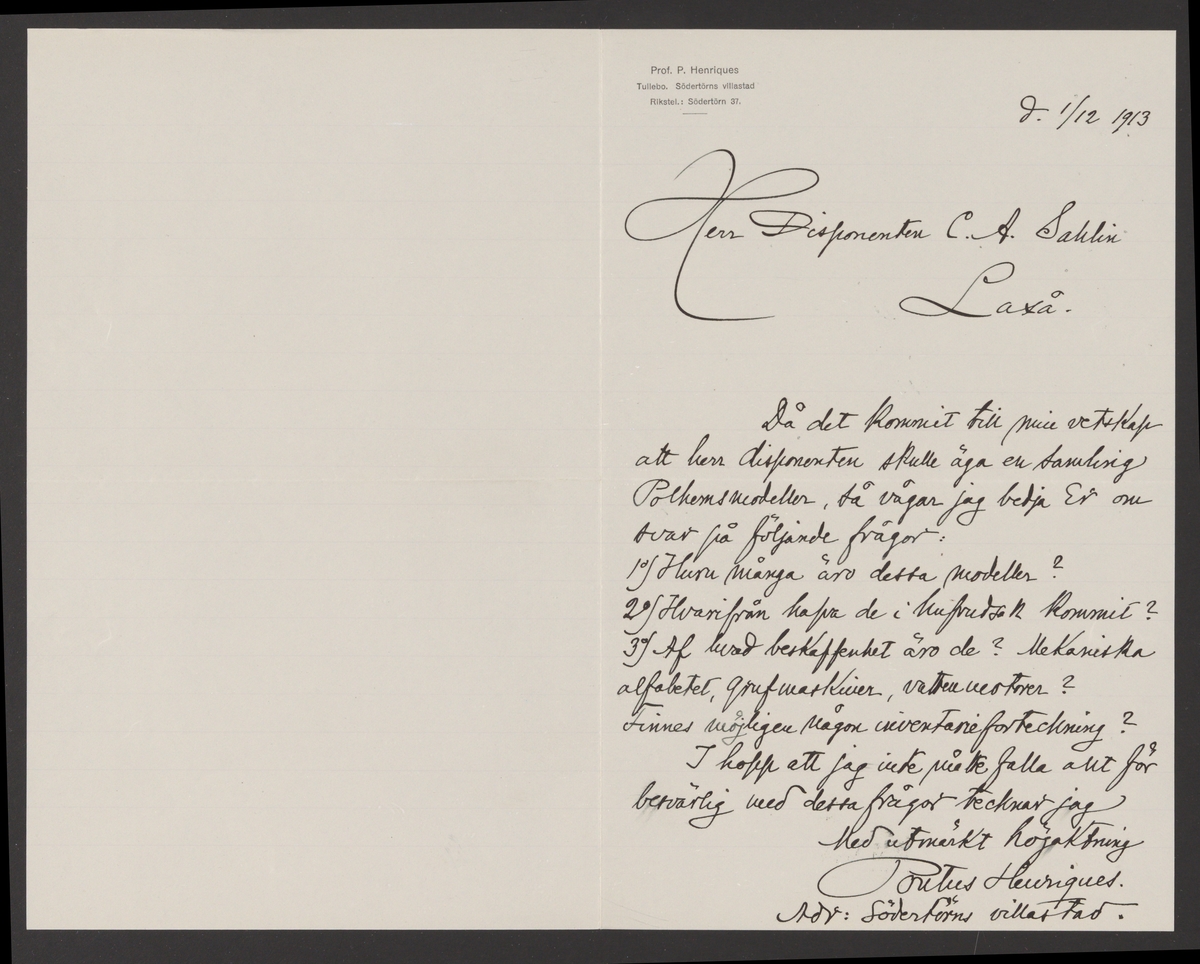 Prof. P. Henriques
Tullebo. Södertörns villastad
Rikstel.: Södertörn 37.
d. 1/12 1913
Herr Disponenten C. A. Sahlin
Laxå.
Då det kommit till min vetskap
att herr disponenten skulle äga en samling
Polhemsmodeller, så vågar jag bedja Er om
svar på följande frågor:
1º) Huru många äro dessa modeller?
2º) Hvarifrån hafva de i hufvudsak kommit?
3º) Af hvad beskaffenhet äro de? Mekaniska
alfabetet, grufmaskiner, vattenmotorer?
Finnes möjligen någon inventarieforteckning?
I hopp att jag inte måtte falla allt för
besvärlig med dessa frågor tecknar jag
Med utmärkt högaktning
Pontus Henriques.
Adr: Södertörns villastad.